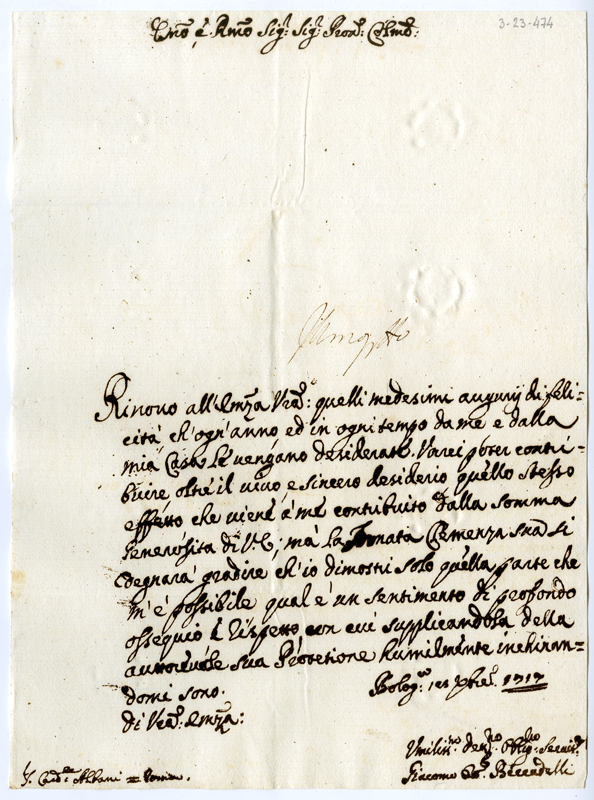 3-23-474
Em̃o é Rm̃o Sig:r Sig:r Pron: Colm̃o:
Rinovo all'Em̃za Vrã: quelli medesimi augurij di feli=
cità, ch'ogn'anno ed in ogni tempo da me e dalla
mia Casa le vengano desiderate. Vorrei poter contri=
buire oltre il vivo, e sincero desiderio quello stesso
effetto che viene a me contribuito dalla somma
Generosità di V: E; mà la Innata Clemenza sua si
degnarà gradire ch'io dimostri solo quella parte che
m'è possibile qual'è un sentimento di profondo
ossequio è rispetto con cui supplicandola della
autorevole sua Protetione humilmente inchinan=
domi sono.
Bolog:a Xbre: 1717
di Vrã: Em̃za:
Umiliss:mo Dev:mo Oblig:mo Servit:re
Giacomo Beccadelli
S:r Card:le Albani = Roma.